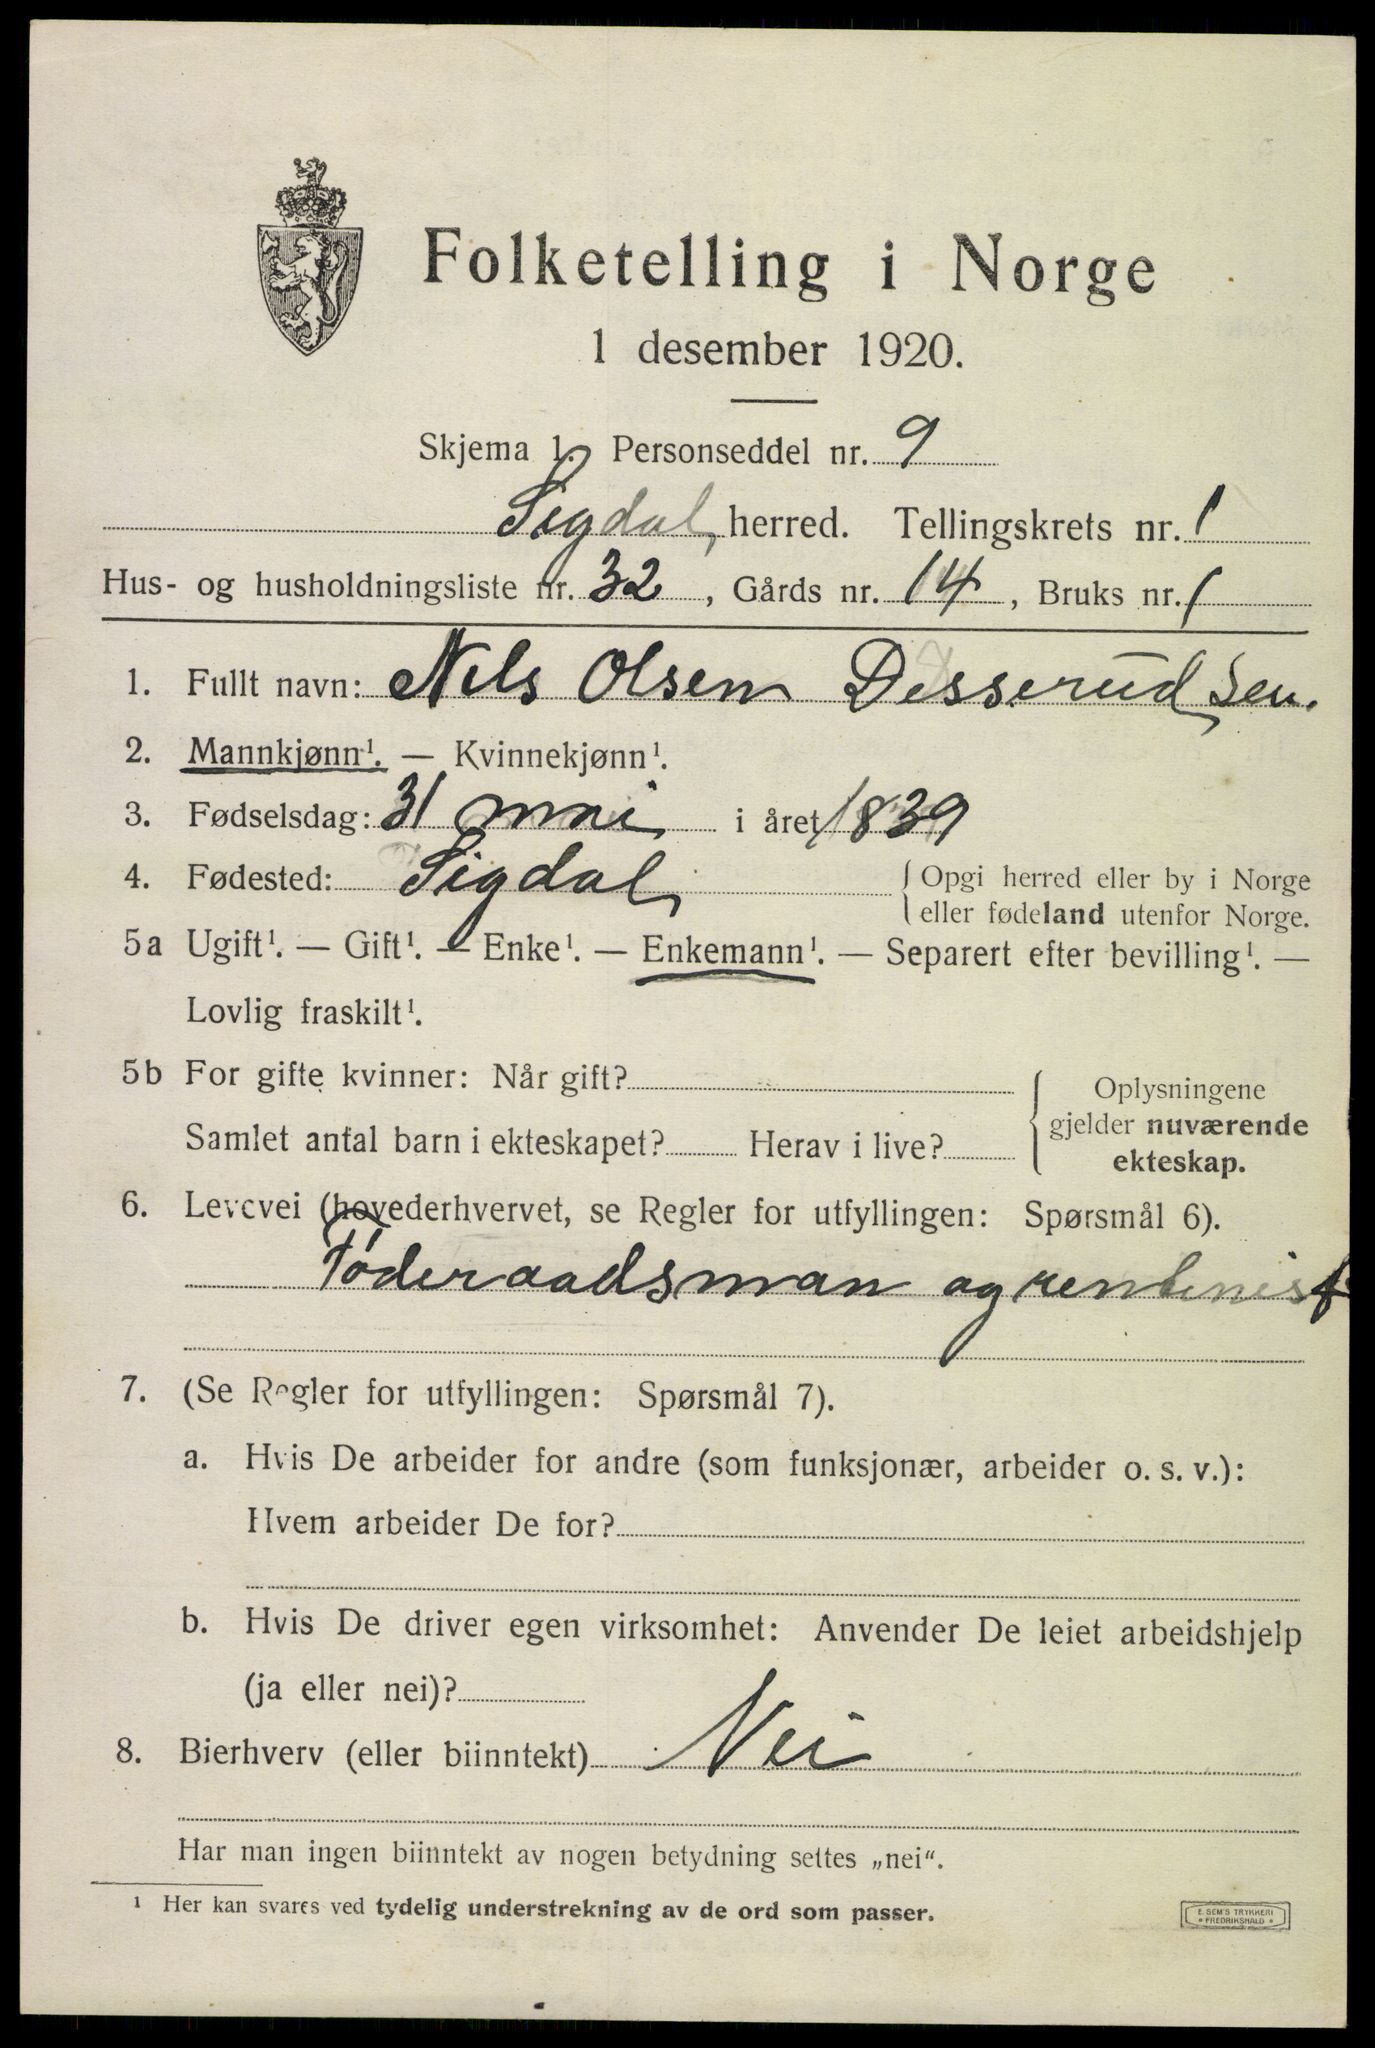 Folketelling i Norge
1 desember 1920.
Skjema 1. Personseddel nr. 9
Sigdal herred. Tellingskrets nr. 1
Hus- og husholdningsliste nr. 32, Gårds nr. 14, Bruks nr. 1
1. Fullt navn: Nils Olsen Desserud Sen.
2. Mannkjønn¹. — Kvinnekjønn¹.
3. Fødselsdag: 31 mai i året 1839
4. Fødested: Sigdal { Opgi herred eller by i Norge
eller fødeland utenfor Norge.
5a Ugift¹. — Gift¹. — Enke¹. — Enkemann¹. — Separert efter bevilling¹. —
Lovlig fraskilt¹.
5b For gifte kvinner: Når gift?
Samlet antal barn i ekteskapet? Herav i live?
{ Oplysningene
gjelder nuværende
ekteskap.
6. Levevei (hovederhvervet, se Regler for utfyllingen: Spørsmål 6).
Føderaadsman og rentenist
7. (Se Regler for utfyllingen: Spørsmål 7).
a. Hvis De arbeider for andre (som funksjonær, arbeider o. s. v.):
Hvem arbeider De for?
b. Hvis De driver egen virksomhet: Anvender De leiet arbeidshjelp
(ja eller nei)?
8. Bierhverv (eller biinntekt) Nei
Har man ingen biinntekt av nogen betydning settes „nei“.
¹ Her kan svares ved tydelig understrekning av de ord som passer.
E. SEM'S TRYKKERI
FREDRIKSHALD